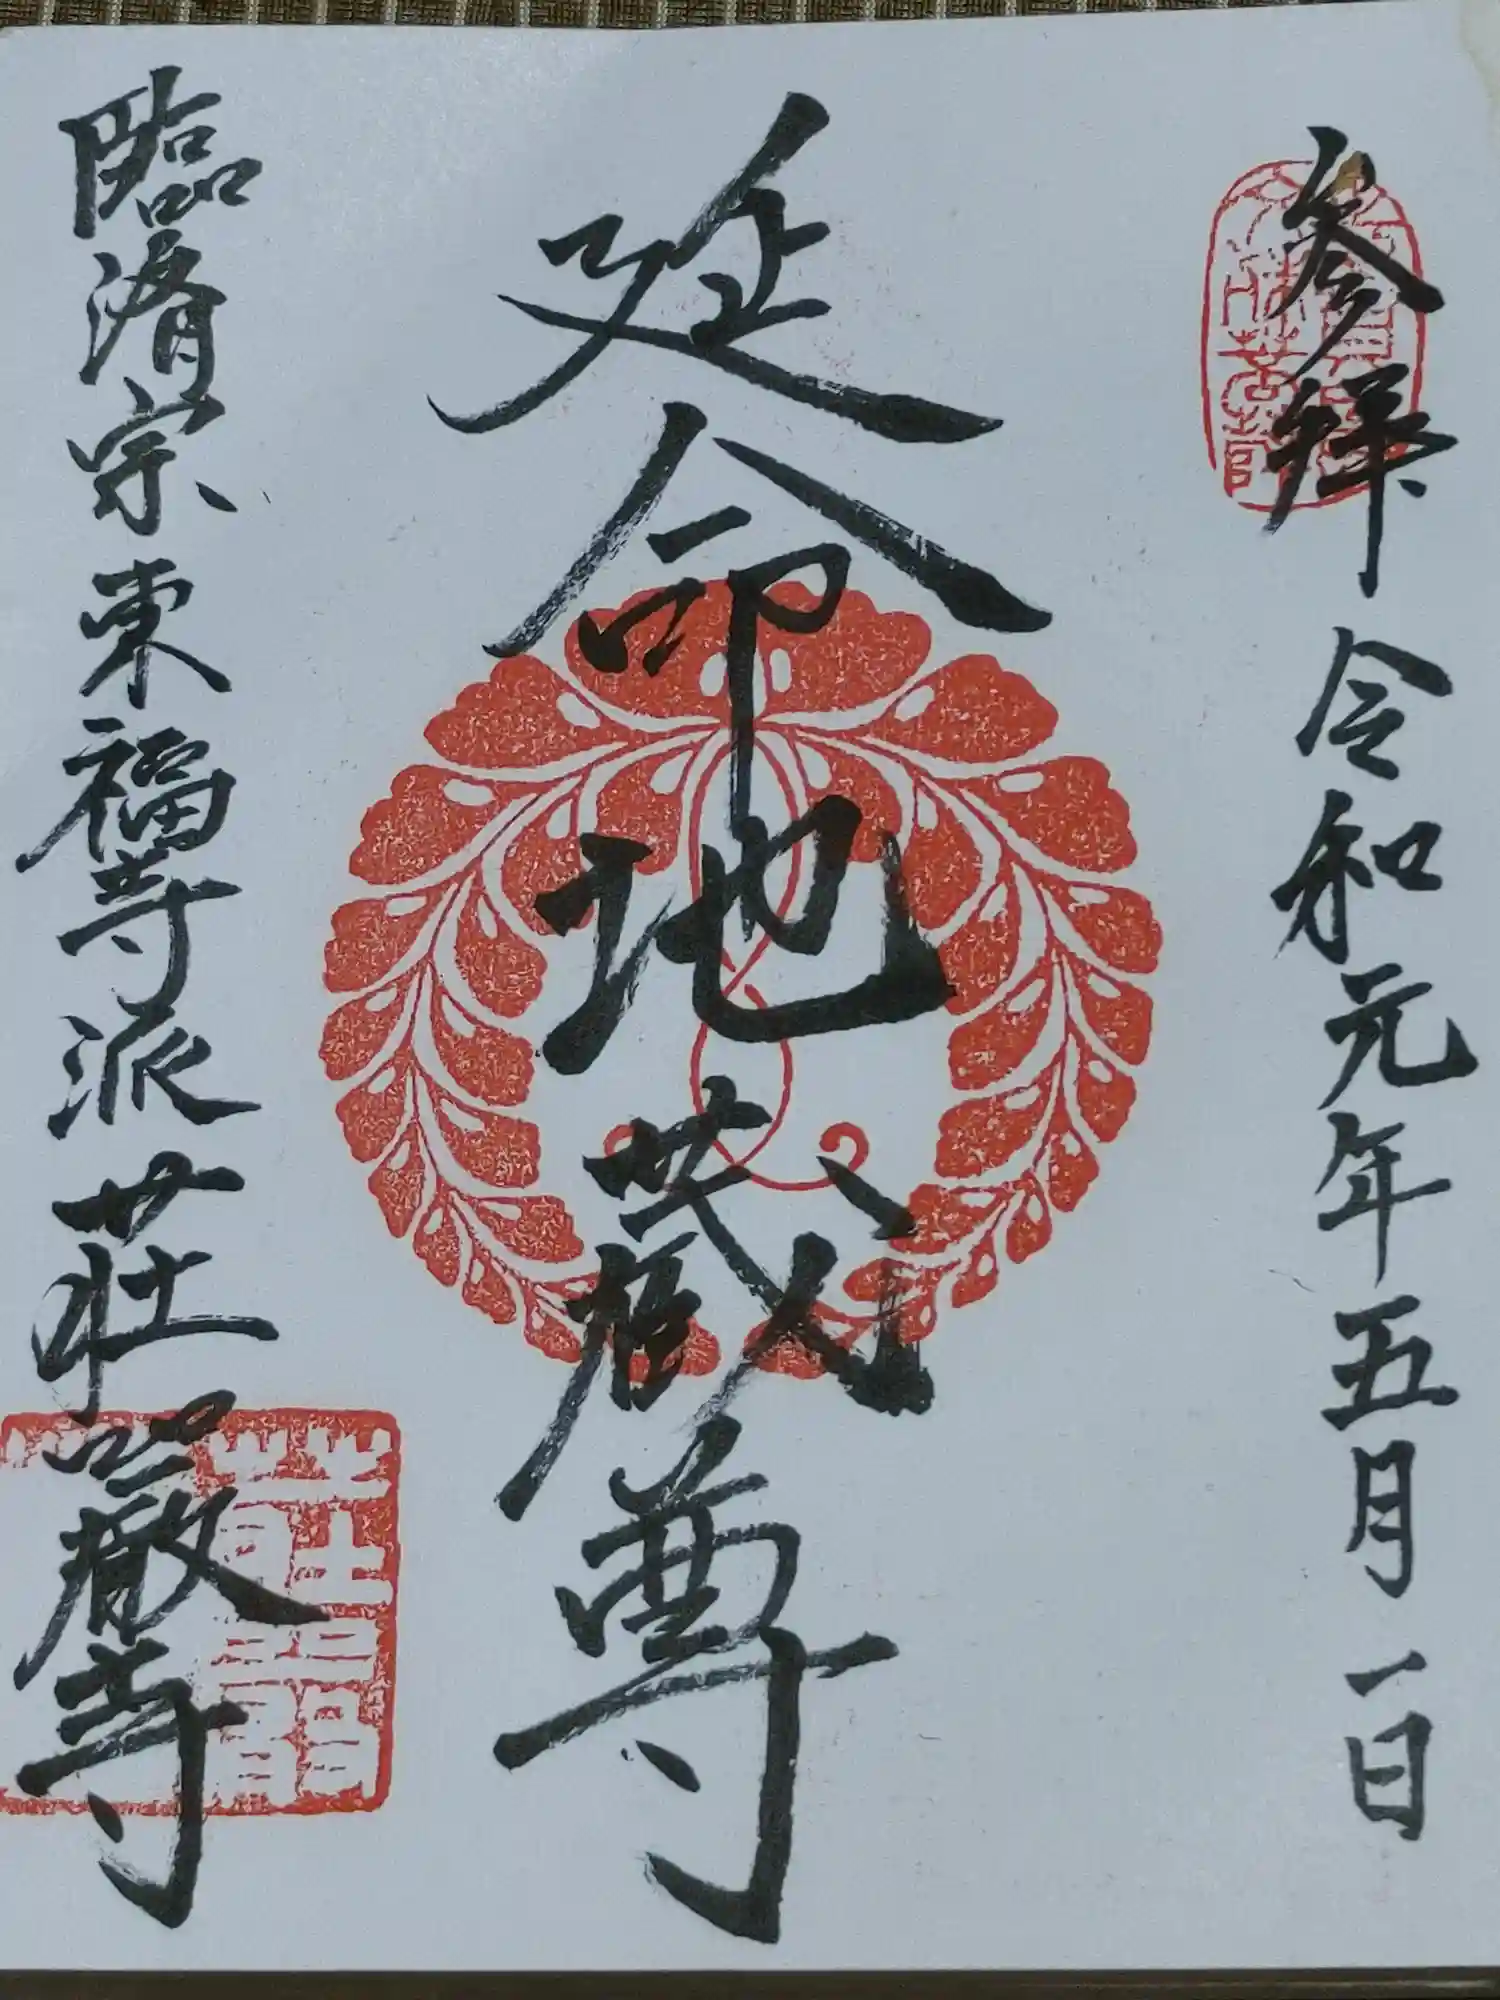 参拝 令和元年五月一日
延命地蔵尊
臨済宗東福寺派 荘厳寺